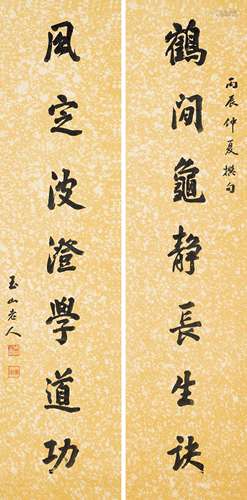 丙辰仲夏撰句
鶴閒龜靜長生訣
風定波澄學道功
玉山老人